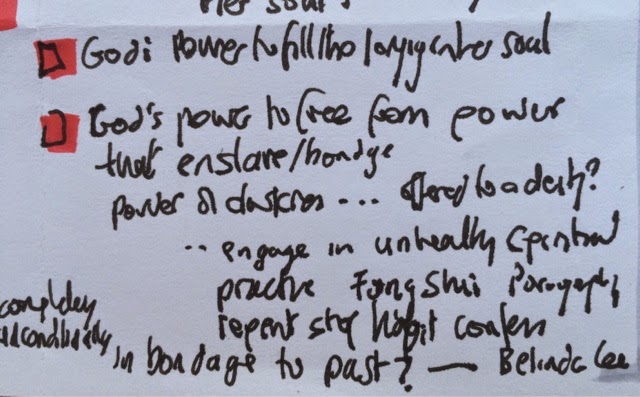 her soul?
God's power to fill the longing in her soul
God's power to free from power
that enslave/bondage
power of darkness ... offered to a deity?
.. engage in unhealthy spiritual
practice Fung Shui
repent stop habit confess
completely
unconditionally
in bondage to past? — Belinda Lee